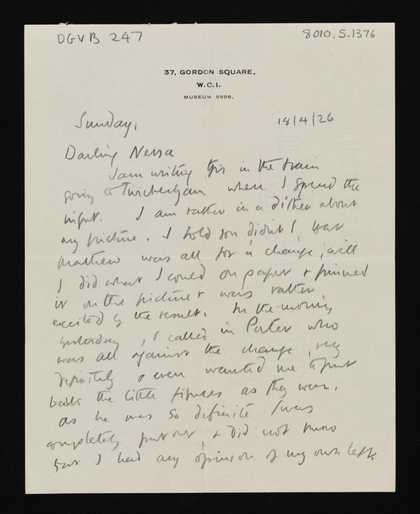 DGVB 247
8010.5.1376
37, GORDON SQUARE,
W.C.1.
MUSEUM
Sunday,
18/4/26
Darling Nessa
I am writing this in the train
going to Twickenham where I spend the
night. I am rather in a dither about
my picture. I told you didn't I that
Matthew was all for a change, well
I did what I could on paper & pinned
it on the picture & was rather
excited by the result. In the morning
yesterday, I called in Porter who
was all against the change, very
definitely & even wanted me to put
back the little figures as they were.
As he was so definite I was
completely put out, & did not know
that I had any opinion of my own left.